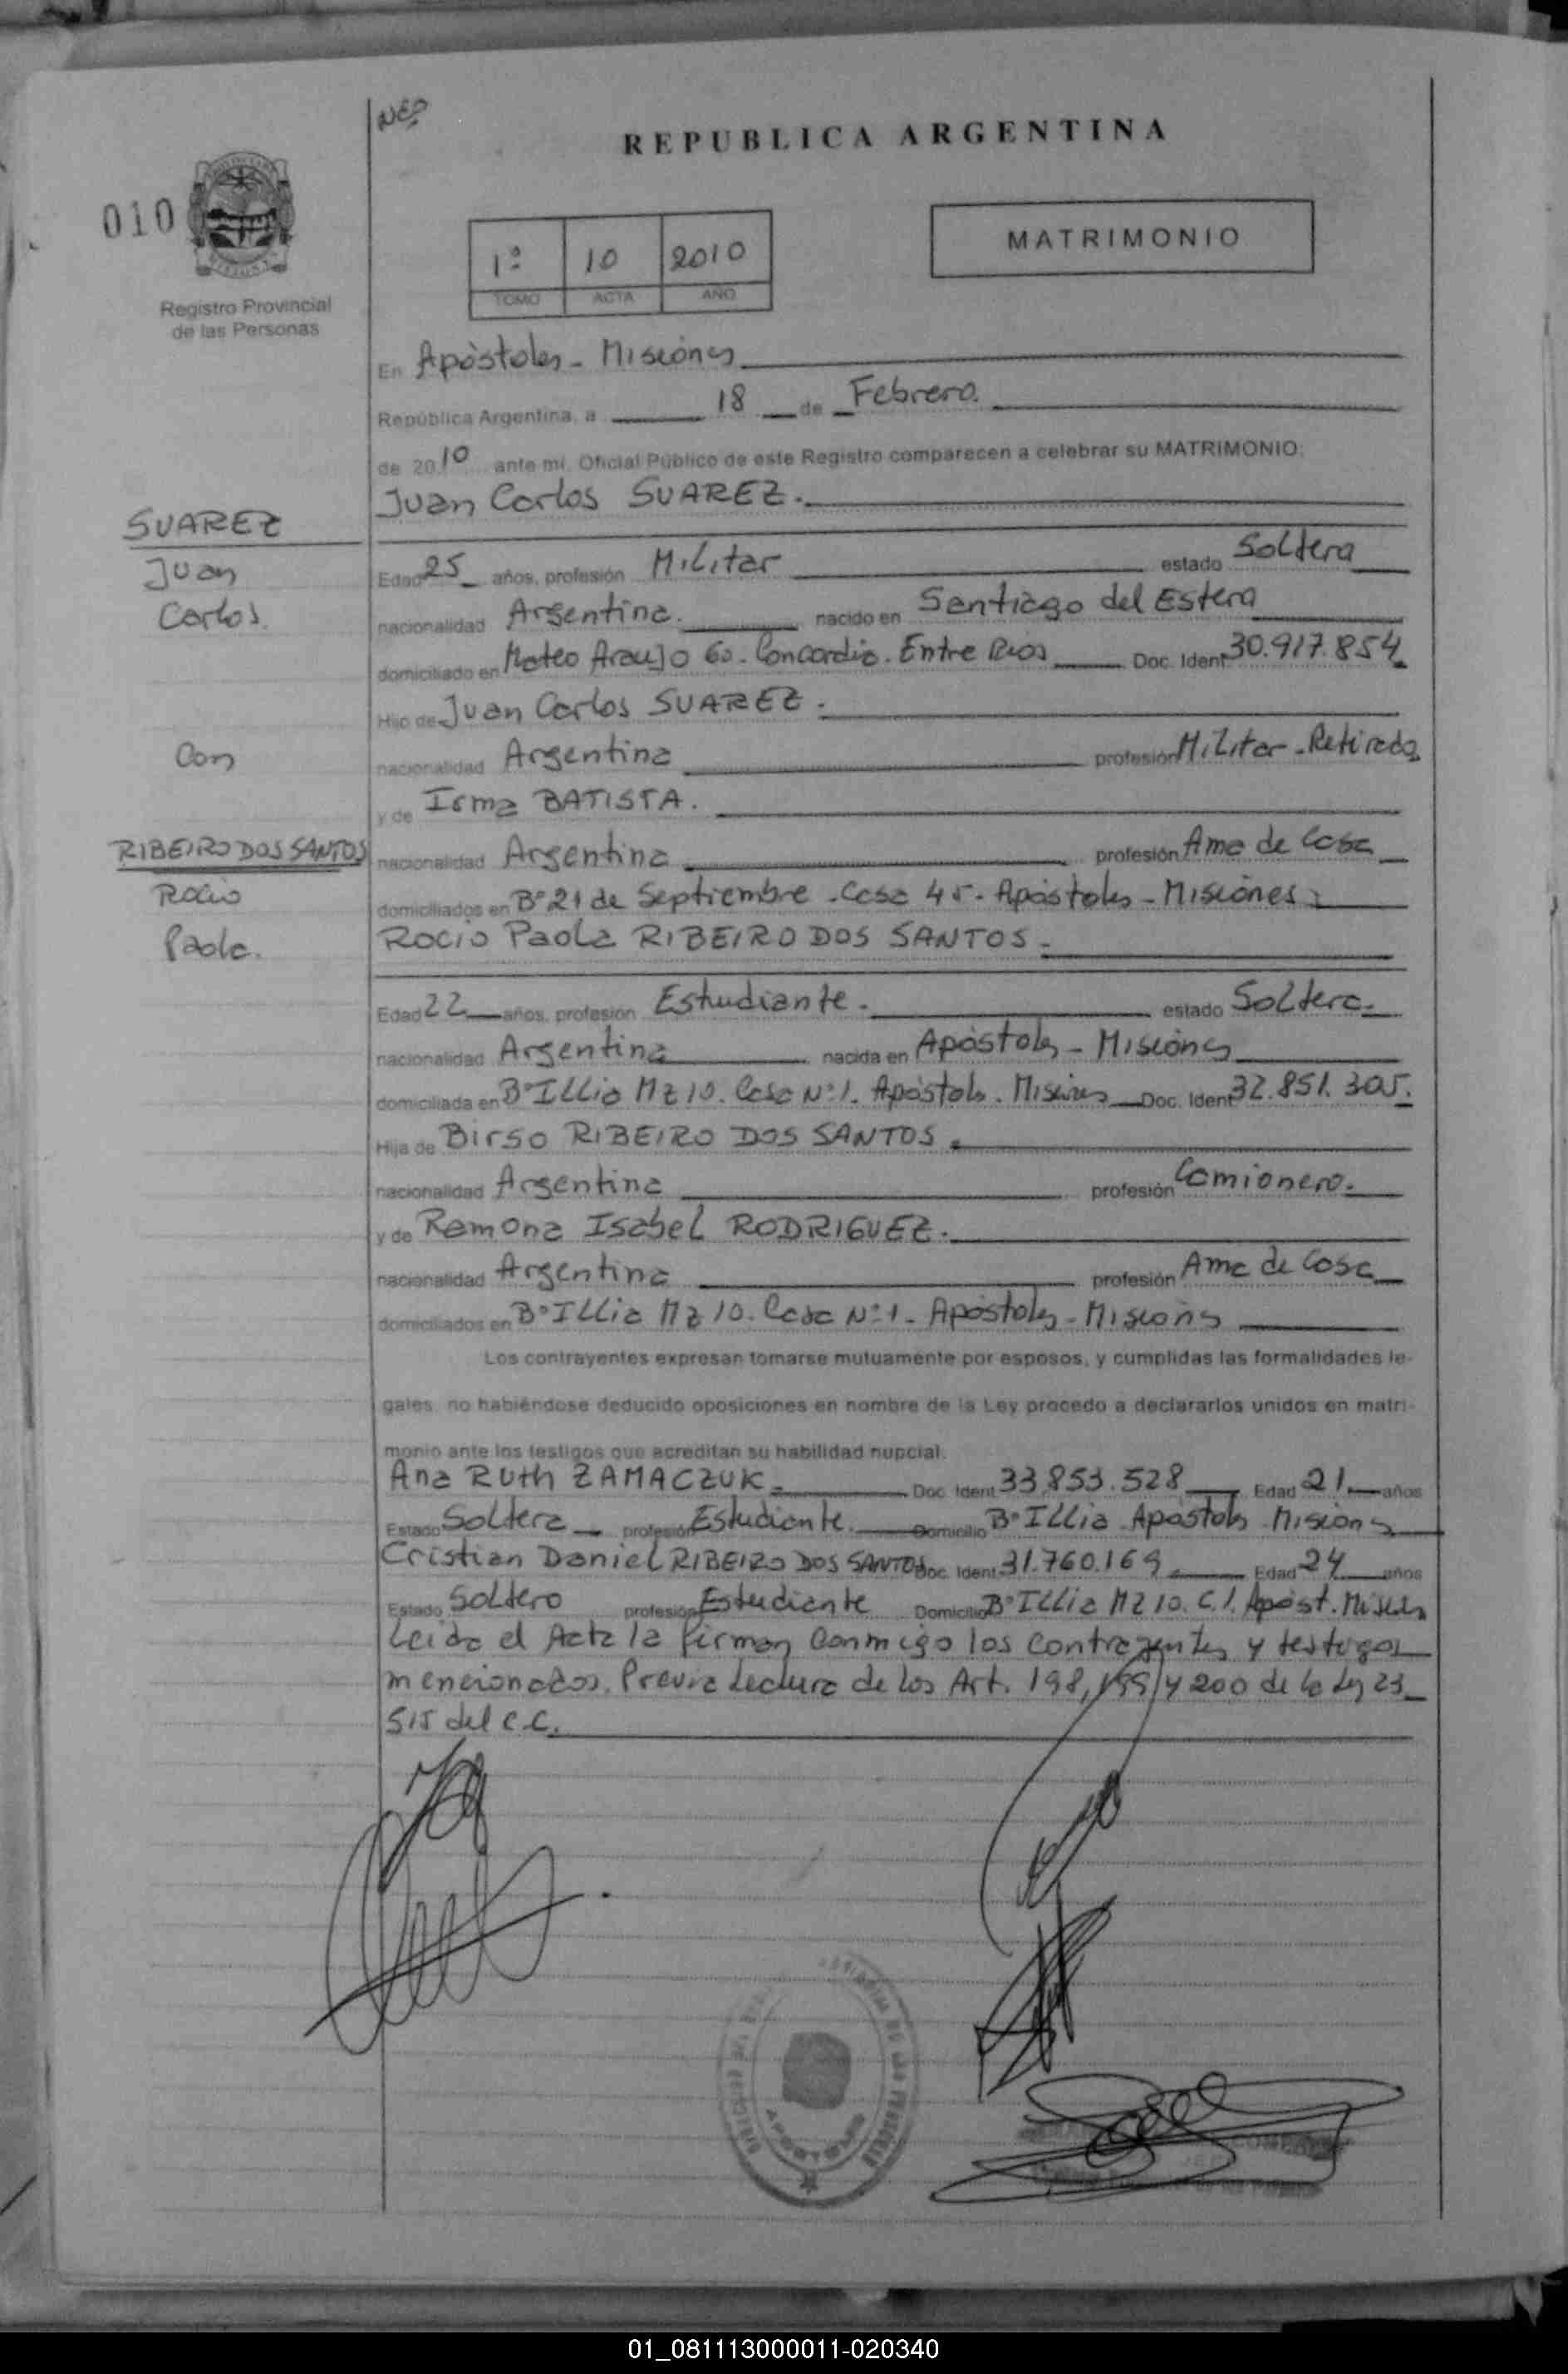 NEP
REPUBLICA ARGENTINA
010
1º 10 2010
TOMO ACTA AÑO
MATRIMONIO
Registro Provincial
de las Personas
En Apóstoles - Misiones
República Argentina, a 18 de Febrero.
de 2010 ante mí, Oficial Público de este Registro comparecen a celebrar su MATRIMONIO:
Juan Carlos SUAREZ.
SUAREZ
Juan
Carlos.
Con
RIBEIRO DOS SANTOS
Rocio
Paola.
Edad 25 años, profesión Militar estado Soltero
nacionalidad Argentina. nacido en Santiago del Estero
domiciliado en Mateo Araujo 60. Concordia. Entre Rios Doc. Ident 30.917.854
Hijo de Juan Carlos SUAREZ.
nacionalidad Argentina profesión Militar - Retirado
y de Irma BATISTA.
nacionalidad Argentina profesión Ama de Casa
domiciliados en Bº 21 de Septiembre. Casa 45. Apóstoles - Misiones
Rocio Paola RIBEIRO DOS SANTOS.
Edad 22 años, profesión Estudiante. estado Soltera.
nacionalidad Argentina nacida en Apóstoles - Misiones
domiciliada en Bº Illia Mz 10. Casa Nº 1. Apóstoles. Misiones Doc. Ident 32.851.305.
Hija de Birso RIBEIRO DOS SANTOS.
nacionalidad Argentina profesión Camionero.
y de Ramona Isabel RODRIGUEZ.
nacionalidad Argentina profesión Ama de Casa
domiciliados en Bº Illia Mz 10. Casa Nº 1. Apóstoles - Misiones
Los contrayentes expresan tomarse mutuamente por esposos, y cumplidas las formalidades le-
gales, no habiéndose deducido oposiciones en nombre de la Ley procedo a declararlos unidos en matri-
monio ante los testigos que acreditan su habilidad nupcial.
Ana Ruth ZAMACZUK. Doc. Ident 33.853.528 Edad 21 años
Estado Soltera profesión Estudiante Domicilio Bº Illia Apóstoles Misiones
Cristian Daniel RIBEIRO DOS SANTOS Doc. Ident 31.760.169 Edad 24 años
Estado Soltero profesión Estudiante Domicilio Bº Illia Mz 10. C.1. Apóst. Misiones
Leida el Acta la firman conmigo los contrayentes y testigos
mencionados. Previa Lectura de los Art. 198, 199 y 200 de la Ley 23
515 del C.C.
APOSTOLES
01_081113000011-020340